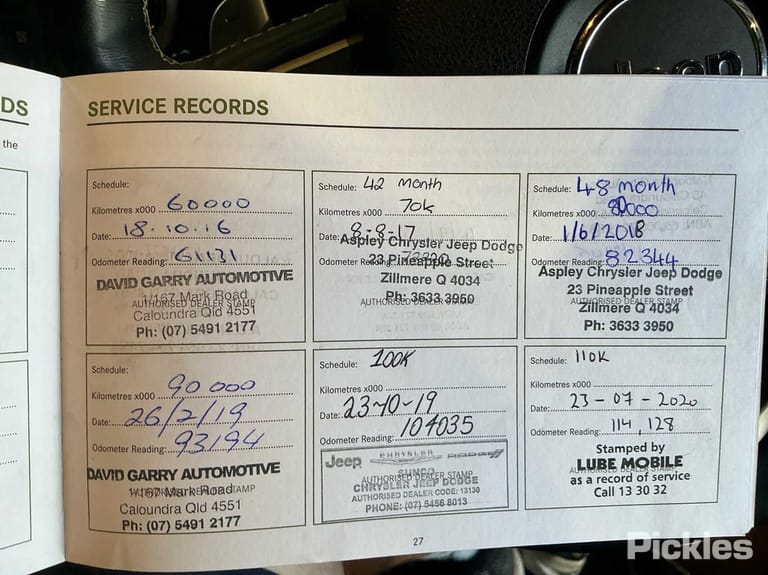 DS
the
SERVICE RECORDS
Schedule:
Kilometres x000 60000
Date: 18.10.16
Odometer Reading: 61131
DAVID GARRY AUTOMOTIVE
1/167 Mark Road
AUTHORISED DEALER STAMP
Caloundra Qld 4551
Ph: (07) 5491 2177
Schedule: 42 month
Kilometres x000 70k
Date: 8-8-17
Aspley Chrysler Jeep Dodge
Odometer Reading:
23 Pineapple Street
Zillmere Q 4034
AUTHORISED DEALER STAMP
Ph: 3633 3950
Schedule: 48 month
Kilometres x000 80000
Date: 1/6/2018
Odometer Reading: 82344
Aspley Chrysler Jeep Dodge
23 Pineapple Street
AUTHORISED DEALER STAMP
Zillmere Q 4034
Ph: 3633 3950
Schedule:
Kilometres x000 90 000
Date: 26/2/19
Odometer Reading: 93194
DAVID GARRY AUTOMOTIVE
1/167 Mark Road
AUTHORISED DEALER STAMP
Caloundra Qld 4551
Ph: (07) 5491 2177
Schedule: 100K
Kilometres x000
Date: 23-10-19
Odometer Reading: 104035
Jeep CHRYSLER DODGE
AUTHORISED DEALER STAMP
CHRYSLER JEEP DODGE
AUTHORISED DEALER CODE: 13130
PHONE: (07) 5456 8013
Schedule: 110K
Kilometres x000
Date: 23-07-2020
Odometer Reading: 114,128
Stamped by
LUBE MOBILE
AUTHORISED DEALER STAMP
as a record of service
Call 13 30 32
27
Jeep
Pickles